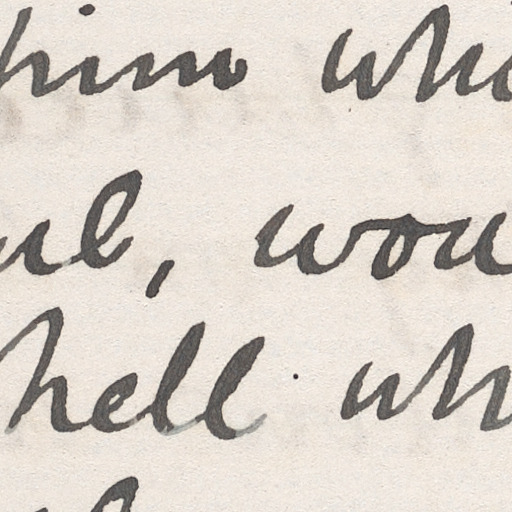 him who
ul, wou
hell wh